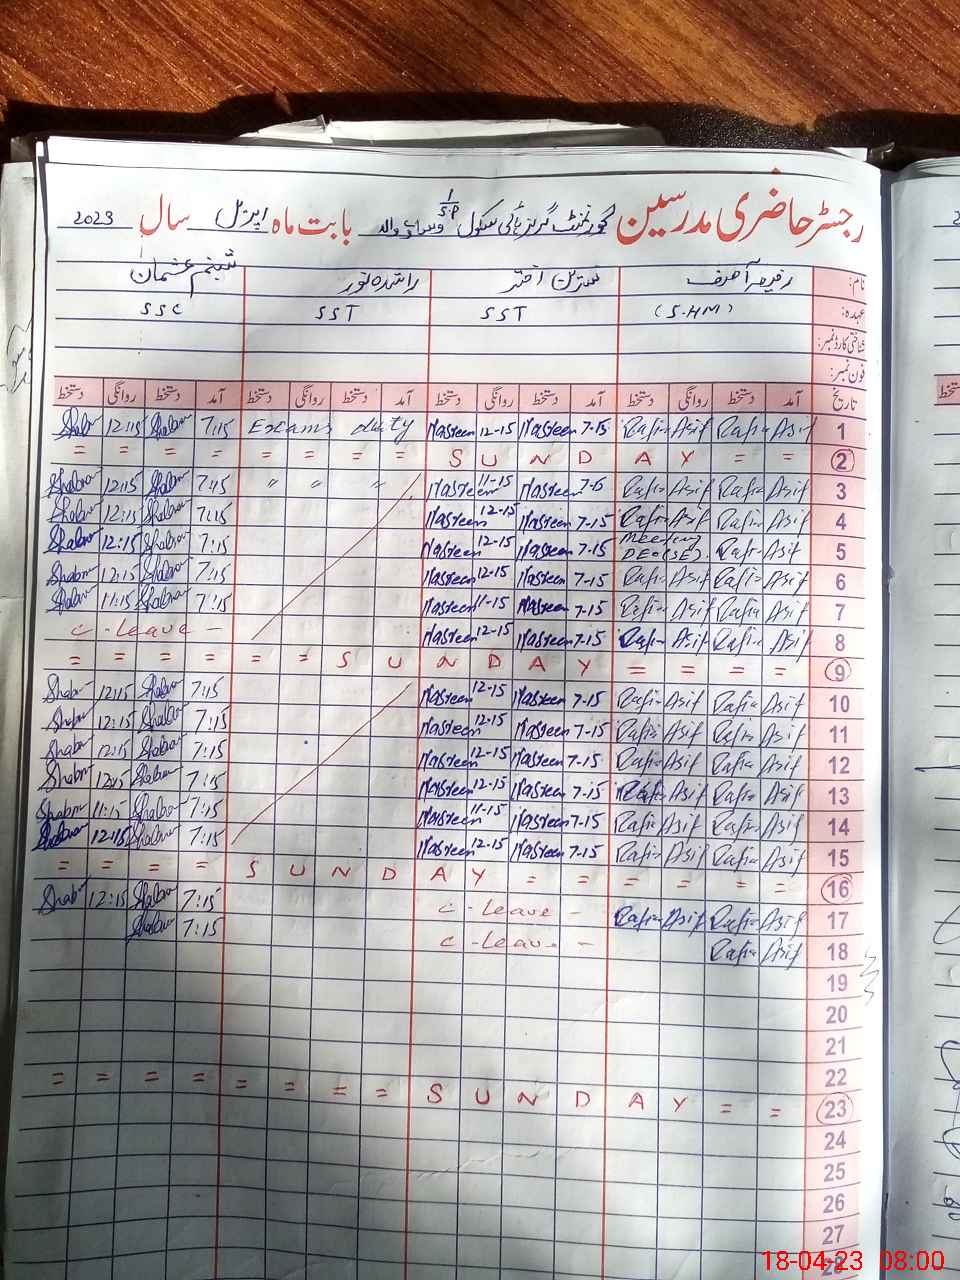 رجسٹر حاضری مدرسین گورنمنٹ گرلز ہائی سکول بابت ماہ اپریل سال 2023
نام: نسرین اختر راشدہ نور شبنم عثمان
عہدہ: (S.HM) SST SST SSC
شناختی کارڈ نمبر:
فون نمبر:
تاریخ آمد دستخط روانگی دستخط آمد دستخط روانگی دستخط آمد دستخط روانگی دستخط آمد دستخط روانگی دستخط
Shabn 12:15 Shabnam 7:15 Exams duty Nasreen 12-15 Nasreen 7-15 Rafia Asif Rafia Asif 1
= = = = = = = = S U N D A Y = = 2
Shabnam 12:15 Shabnam 7:15 " " " Nasreen 11-15 Nasreen Rafia Asif Rafia Asif 3
Shabnam 12:15 Shabnam 7:15 Nasreen 12-15 Nasreen 7-15 Rafia Asif Rafia Asif 4
Shabnam 12:15 Shabnam 7:15 Nasreen 12-15 Nasreen 7-15 Meeting DEO(SE). Rafia Asif 5
Shabnam 12:15 Shabnam 7:15 Nasreen 12-15 Nasreen 7-15 Rafia Asif Rafia Asif 6
Shabnam 11:15 Shabnam 7:15 Nasreen 11-15 Nasreen 7-15 Rafia Asif Rafia Asif 7
C - Leave - Nasreen 12-15 Nasreen 7-15 Rafia Asif Rafia Asif 8
= = = = = = S U N D A Y = = = = 9
Shabn 12:15 Shabnam 7:15 Nasreen 12-15 Nasreen 7-15 Rafia Asif Rafia Asif 10
Shabn 12:15 Shabnam 7:15 Nasreen 12-15 Nasreen 7-15 Rafia Asif Rafia Asif 11
Shabn 12:15 Shabnam 7:15 Nasreen 12-15 Nasreen 7-15 Rafia Asif Rafia Asif 12
Shabn 12:15 Shabnam 7:15 Nasreen 12-15 Nasreen 7-15 Rafia Asif Rafia Asif 13
Shabnam 11:15 Shabnam 7:15 Nasreen 11-15 Nasreen 7-15 Rafia Asif Rafia Asif 14
Shabnam 12:15 Shabnam 7:15 Nasreen 12-15 Nasreen 7-15 Rafia Asif Rafia Asif 15
= = = = S U N D A Y = = = = = = 16
Shabn 12:15 Shabnam 7:15 C - Leave - Rafia Asif Rafia Asif 17
Shabnam 7:15 C - Leave - Rafia Asif 18
19
20
21
22
= = = = = = = = S U N D A Y = = 23
24
25
26
27
28
18-04-23 08:00